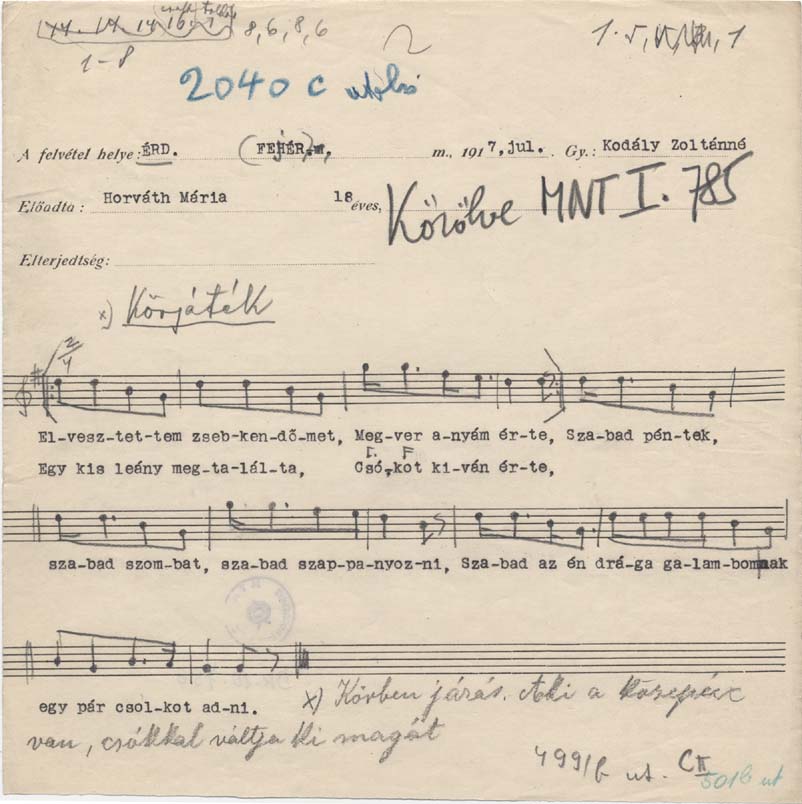 14. 14. 14 16. 8, 6, 8, 6
2
1-8
2040 C utolsó
A felvétel helye: ÉRD. (FEHÉR) m., 1917, jul. Gy.: Kodály Zoltánné
Előadta: Horváth Mária 18 éves,
Közölve MNT I. 785
Elterjedtség:
x) Körjáték
2/4
El-vesz-tet-tem zseb-ken-dő-met, Meg-ver a-nyám ér-te, Sza-bad pén-tek,
Egy kis leány meg-ta-lál-ta, Csó-kot ki-ván ér-te,
sza-bad szom-bat, sza-bad szap-pa-nyoz-ni, Sza-bad az én drá-ga ga-lam-bomnak
egy pár csol-kot ad-ni.
x) Körben járás. Aki a közepén
van, csókkal váltja ki magát
499/b ut. CII
501b ut